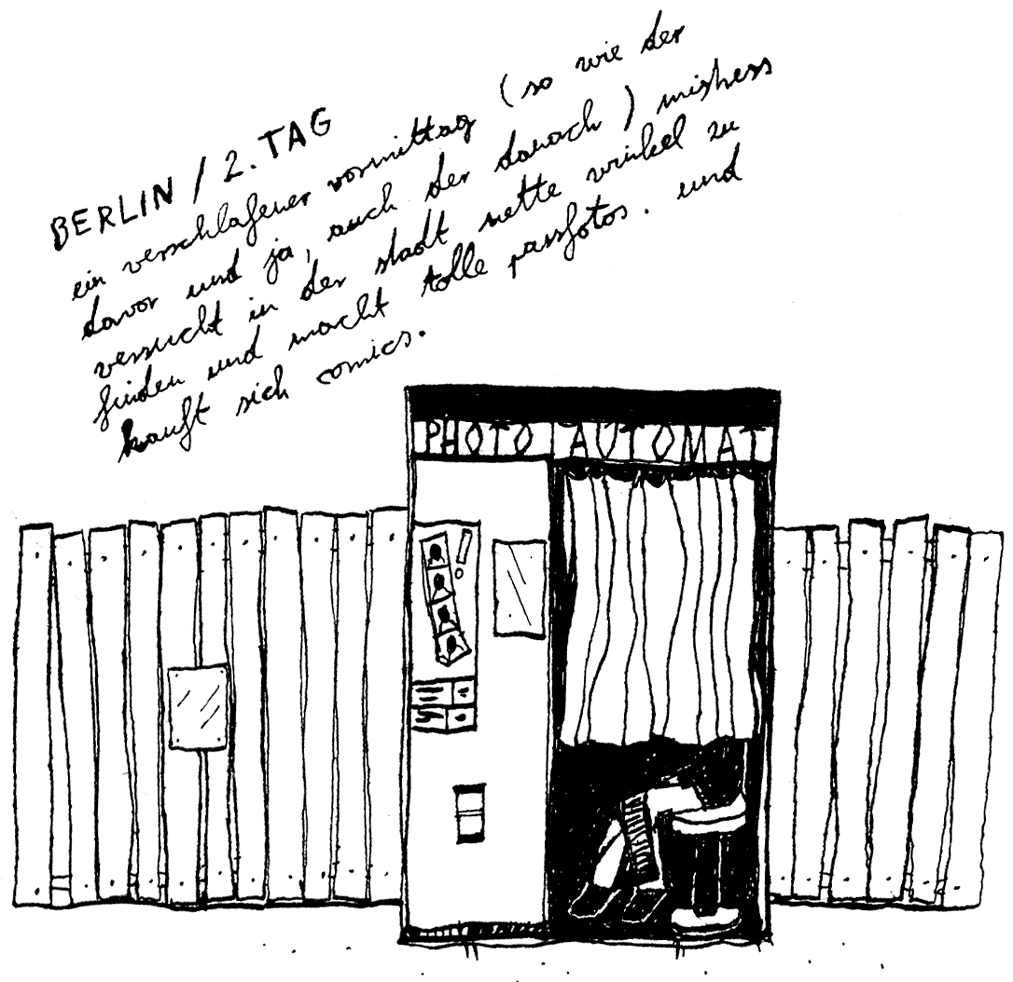 BERLIN / 2. TAG
ein verschlafener vormittag (so wie der
davor und ja, auch der danach) mistress
versucht in der stadt nette winkel zu
finden und macht tolle passfotos. und
kauft sich comics.
PHOTO AUTOMAT